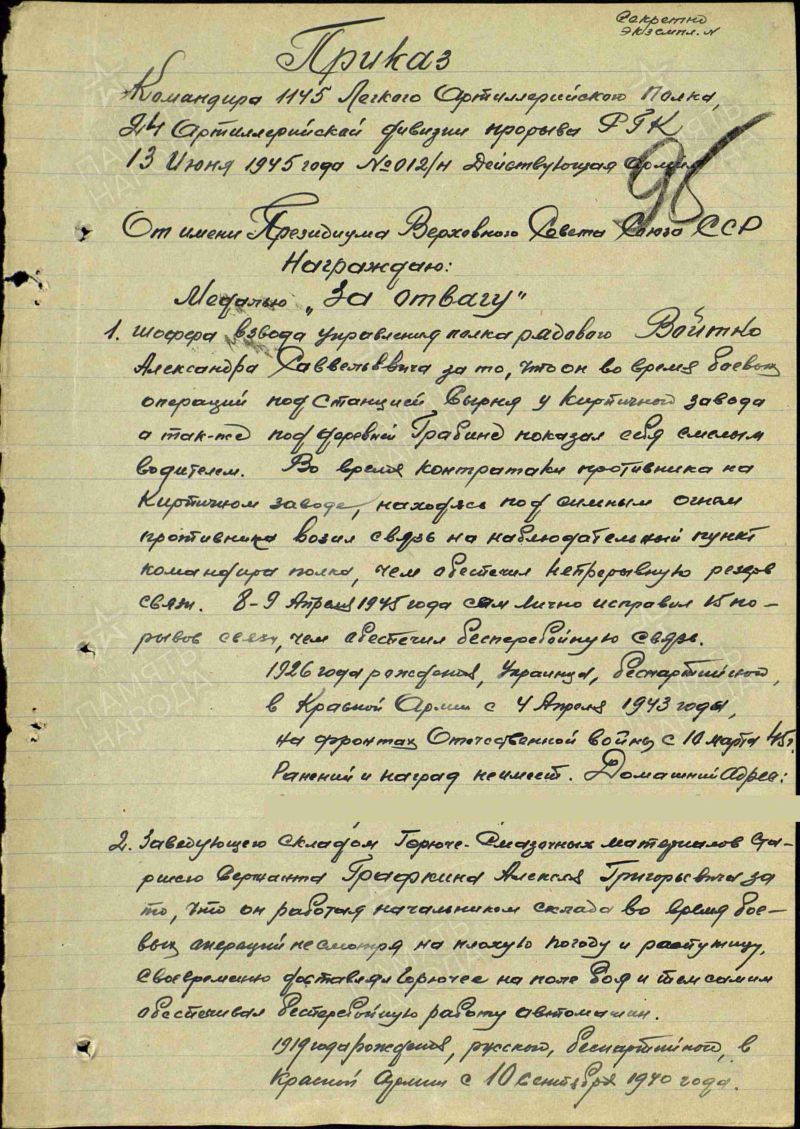 Секретно
Экземпл. N
Приказ
Командира 1145 Легкого Артиллерийского Полка,
24 Артиллерийской дивизии прорыва РГК
13 Июня 1945 года №012/н Действующая Армия
96
От имени Президиума Верховного Совета Союза ССР
Награждаю:
Медалью „За отвагу"
1. шофера взвода управления полка рядового Войтко
Александра Савельевича за то, что он во время боевых
операций под Станцией Вырня у Кирпичного завода
а так-же под деревней Грабинд показал себя смелым
водителем. Во время контратаки противника на
Кирпичном заводе, находясь под сильным огнем
противника возил связь на наблюдательный пункт
командира полка, чем обеспечил непрерывную резерв
связи. 8-9 Апреля 1945 года сам лично исправил 15 по-
рывов связи, чем обеспечил бесперебойную связь.
1926 года рождения, Украинца, беспартийного,
в Красной Армии с 4 Апреля 1943 годы,
на фронтах Отечественной войны с 10 марта 45г.
Ранений и наград не имеет. Домашний Адрес:
2. Заведующего складом Горюче-Смазочных материалов Ста-
ршего Сержанта Графкина Алексея Григорьевича за
то, что он работая начальником склада во время бое-
вых операций не смотря на плохую погоду и распутицу,
своевременно доставлял горючее на поле боя и тем самим
обеспечивал бесперебойную работу автомашин.
1919 года рождения, русского, беспартийного, в
Красной Армии с 10 сентября 1940 года.
ПАМЯТЬ
НАРОДА